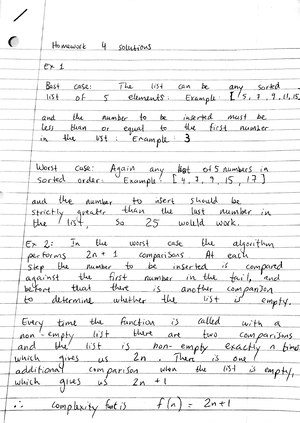 Homework 4 solutions
Ex 1
Best case: The list can be any sorted
list of 5 elements. Example: [5, 7, 9, 11, 15
and the number to be inserted must be
less than or equal to the first number
in the list. Example 3
Worst case: Again any list of 5 numbers in
sorted order. Example [4, 7, 9, 15, 17]
and the number to insert should be
strictly greater than the last number in
the list. So 25 would work.
Ex 2: In the worst case the algorithm
performs 2n + 1 comparisons. At each
step the number to be inserted is compared
against the first number in the tail, and
before that there is another comparison
to determine whether the list is empty.
Every time the function is called with a
non-empty list there are two comparisons
and the list is non-empty exactly n times
which gives us 2n. There is one
additional comparison when the list is empty,
which gives us 2n + 1
∴ complexity is f(n) = 2n+1